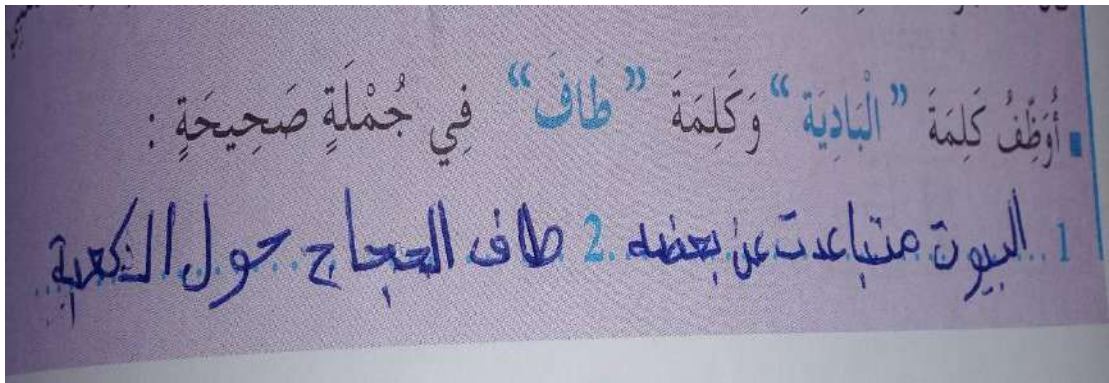 أُوَظِّفُ كَلِمَةَ "الْبَادِيَة" وَكَلِمَةَ "طَافَ" فِي جُمْلَةٍ صَحِيحَةٍ :
1. البيوت متباعدت عن بعضه 2. طاف الحجاج حول الكعبة